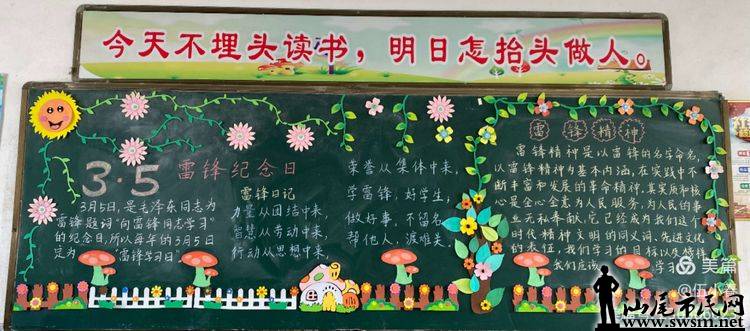 今天不埋头读书，明日怎抬头做人。
3·5 雷锋纪念日
3月5日，是毛泽东同志为
雷锋题词"向雷锋同志学习"
的纪念日，所以每年的3月5日
定为"雷锋学习日"。
雷锋日记
力量从团结中来，
智慧从劳动中来，
行动从思想中来，
荣誉从集体中来，
学雷锋，好学生，
做好事，不留名，
帮他人，渡难关
雷锋精神
雷锋精神是以雷锋的名字命名，
以雷锋精神为基本内涵，在实践中不
断丰富和发展的革命精神，其实质和核
心是全心全意为人民服务，为人民的事
业无私奉献，它已经成为我们这个
时代精神文明的同义词、先进文化
的表征，我们学习的目标以及榜样
我们应该
学习
美篇
@伍小
汕尾市民网
www.swsm.net